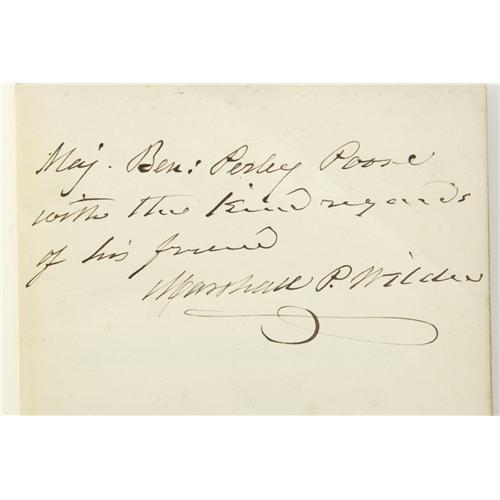 Maj. Ben: Perley Poore
with the kind regards
of his friend
Marshall P. Wilder